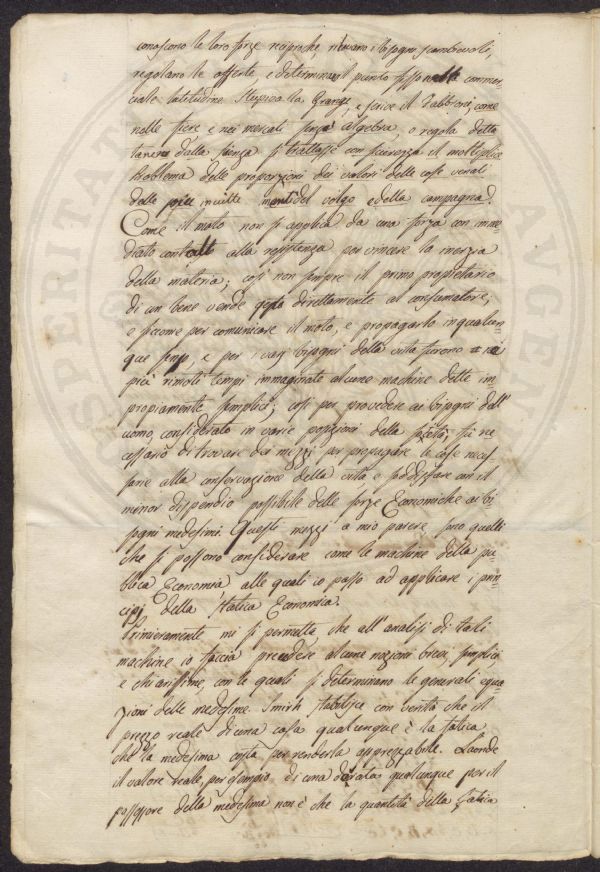 conoscono le loro forze reciproche, rilevano i bisogni scambievoli,
regolano le offerte, e determinano il punto fisso nella commer-
ciale latitudine. Stupiva la Grange, e scrive il Fabbroni, come
nelle fiere e nei mercati senza algebra, o regola detta
tanera dalla scienza si trattasse con sicurezza il moltiplice
Problema delle proporzioni dei valori delle cose venali
dalle più inculte menti del volgo e della campagna?
Come il moto non si applica da una forza con imme
diato contatto alla resistenza per vincere la inerzia
della materia; così non sempre il primo proprietario
di un bene vende questo direttamente al consumatore;
e siccome per comunicare il moto, e propagarlo in qualun-
que senso, e per i varj bisogni della vita furono nei
più rimoti tempi immaginate alcune machine dette im-
propiamente semplici; così per provedere ai bisogni dell'
uomo, considerato in varie posizioni della società, fu ne
cessario di trovare dei mezzi per propagare le cose neces
sarie alla conservazione della vita e soddisfare con il
minor dispendio possibile delle forze Economiche ai bi-
sogni medesimi. Questi mezzi a mio parere sono quelli
che si possono considerare come le machine della pu-
blica Economia alle quali io passo ad applicare i prin-
cipj della statica Economia.
Primieramente mi si permetta, che all'analisi di tali
machine io faccia precedere alcune nozioni brevi, semplici
e chiarissime, con le quali si determinano le generali equa-
zioni delle medesime. Smith stabilisce con verità che il
prezzo reale di una cosa qualunque è la fatica,
che la medesima costa per renderla apprezzabile. Laonde
il valore reale, per esempio, di una derrata qualunque per il
possessore della medesima non è che la quantità della fatica